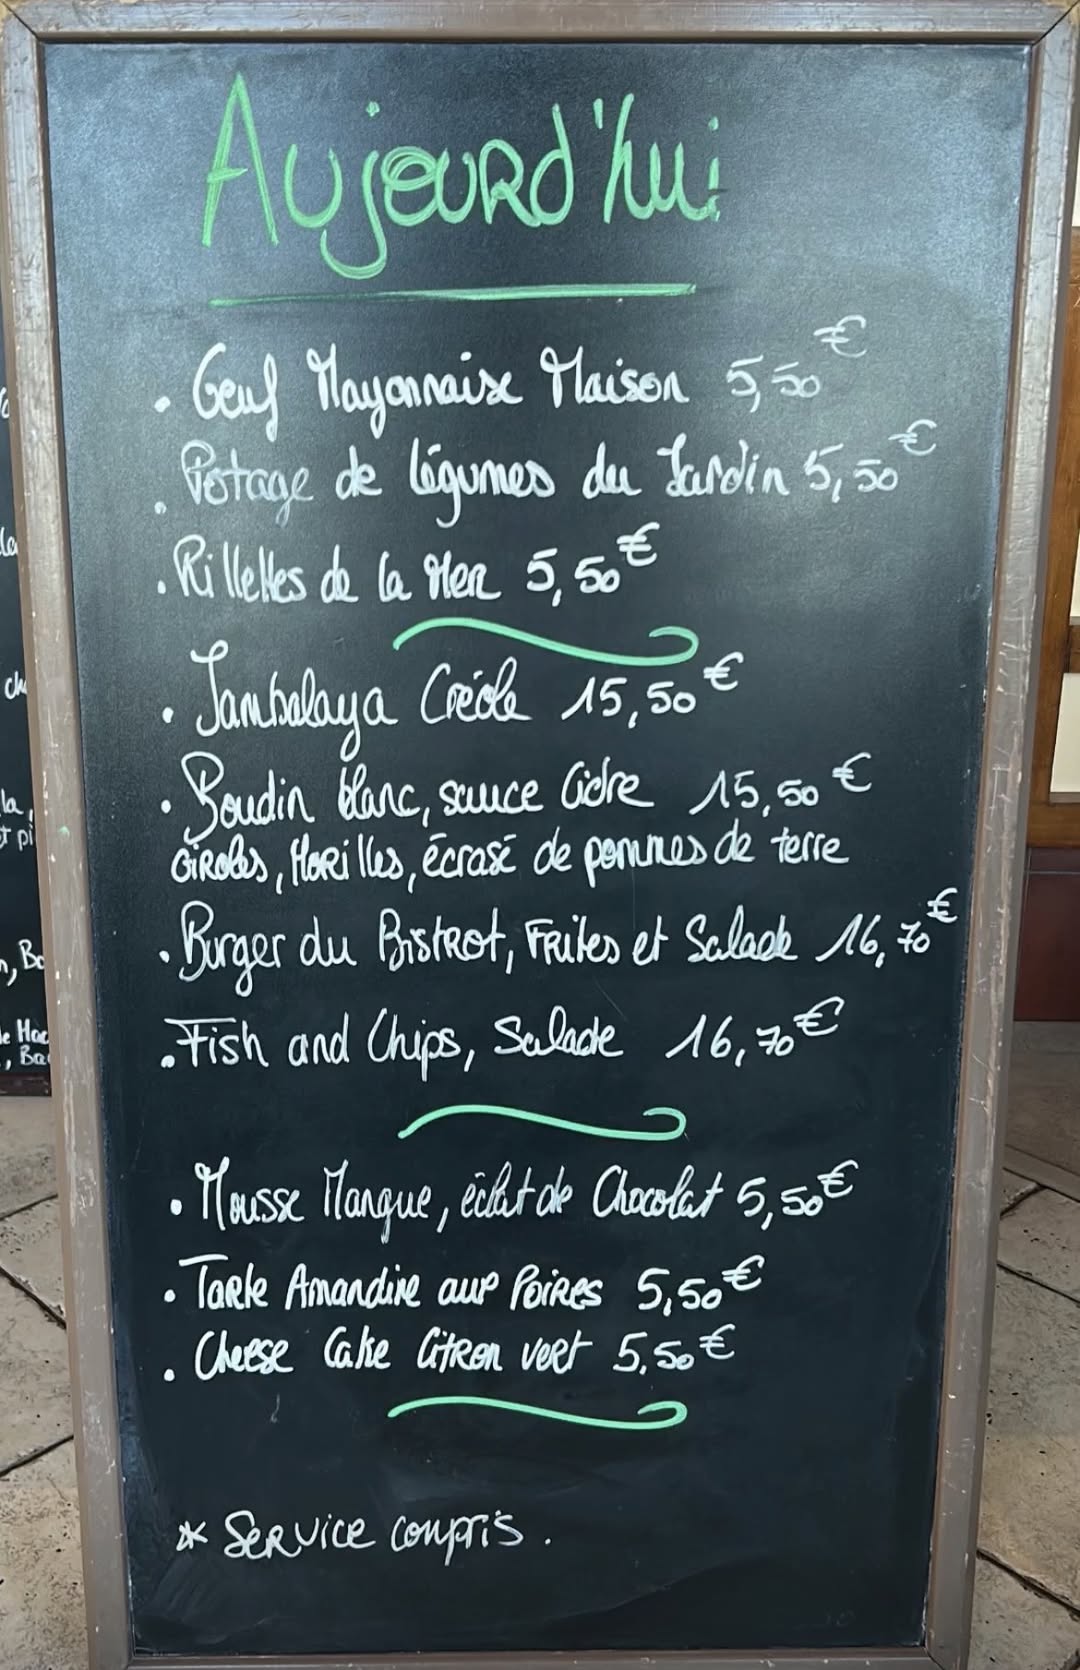 Aujourd'hui
. Oeuf Mayonnaise Maison 5,50€
. Potage de légumes du Jardin 5,50€
. Rillettes de la Mer 5,50€
. Jambalaya Créole 15,50€
. Boudin blanc, sauce Cidre 15,50€
Girolles, Morilles, écrasé de pommes de terre
. Burger du Bistrot, Frites et Salade 16,70€
. Fish and Chips, Salade 16,70€
. Mousse Mangue, éclat de Chocolat 5,50€
. Tarte Amandine aux Poires 5,50€
. Cheese Cake Citron vert 5,50€
* Service compris.